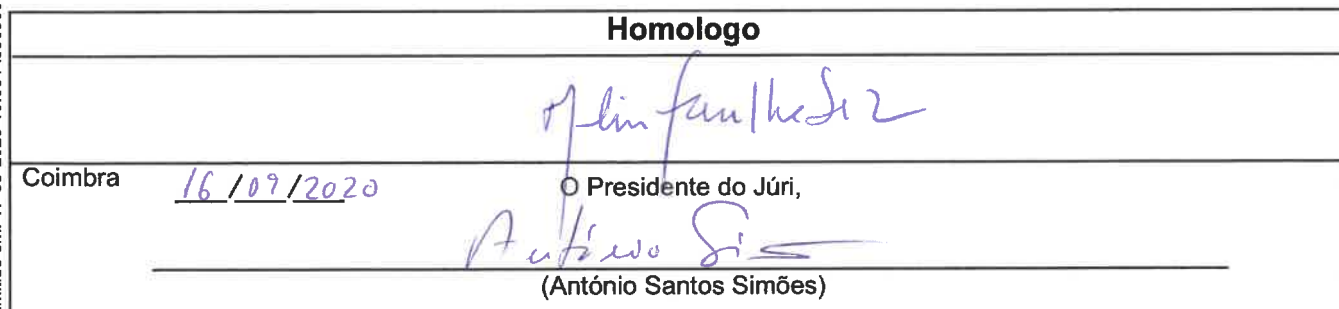 Homologo
Coimbra 16/09/2020 O Presidente do Júri,
António Si
(António Santos Simões)